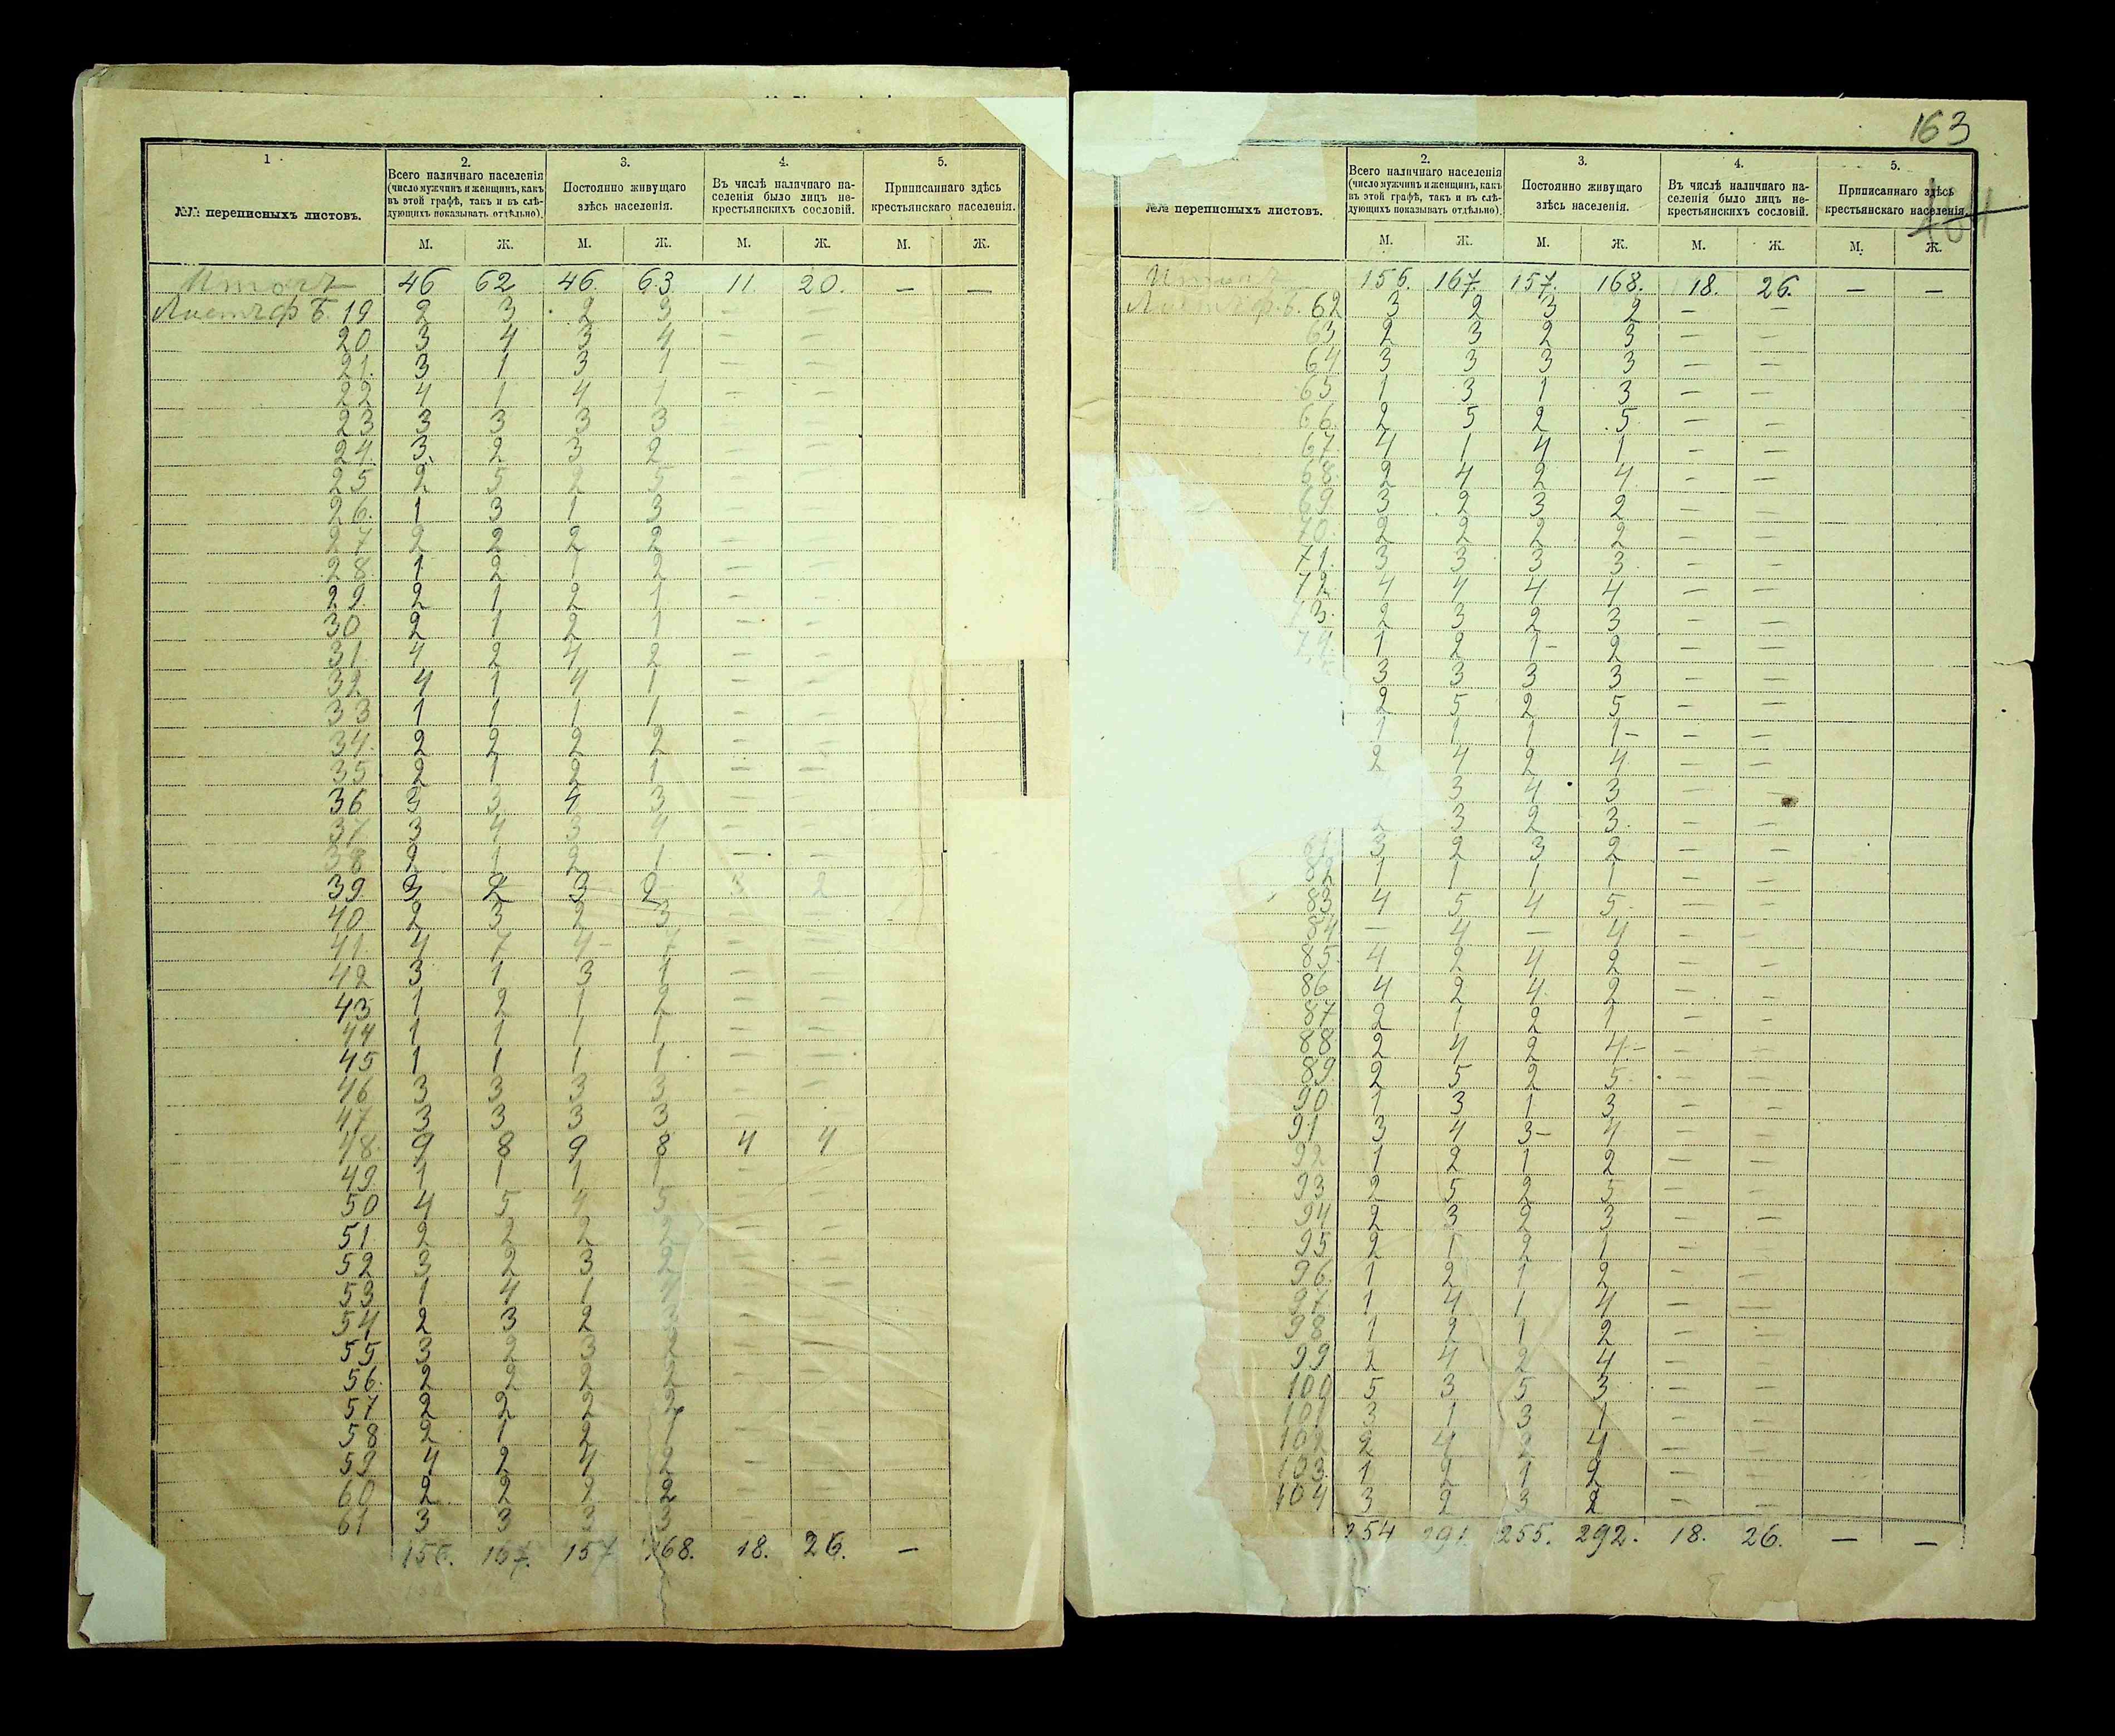 1.
2.
3.
4.
5.
№№ переписныхъ листовъ.
Всего наличнаго населенія
(число мужчинъ и женщинъ, какъ
въ этой графѣ, такъ и въ слѣ-
дующихъ показывать отдѣльно).
Постоянно живущаго
здѣсь населенія.
Въ числѣ наличнаго на-
селенія было лицъ не-
крестьянскихъ сословій.
Приписаннаго здѣсь
крестьянскаго населенія.
М. Ж. М. Ж. М. Ж. М. Ж.
Итого 46 62 46 63 11 20. — —
Листъ ф Б. 19 2 3 2 3 — —
20 3 4 3 4 — —
21. 3 1 3 1 — —
22 4 1 4 1 — —
23 3 3 3 3 — —
24. 3 2 3 2 — —
25 2 5 2 5 — —
26. 1 3 1 3 — —
27 2 2 2 2 — —
28 1 2 1 2 — —
29. 2 1 2 1 — —
30 2 1 2 1 — —
31 4 2 4 2 — —
32 4 1 4 1 — —
33 1 1 1 1 — —
34. 2 2 2 2 — —
35 2 1 2 1 — —
36 3 3 4 3 — —
37 3 4 3 4 — —
38 2 1 2 1 — —
39 3 2 3 2 3 2
40 2 3 2 3 — —
41. 4 7 4 7 — —
42 3 1 3 1 — —
43 1 2 1 2 — —
44 1 1 1 1 — —
45 1 1 1 1 — —
46 3 3 3 3 — —
47 3 3 3 3 — —
48. 9 8 9 8 4 4
49 1 1 1 1 — —
50 4 5 4 5 — —
51 2 2 2 2 — —
52 3 2 3 2 — —
53 1 4 1 4 — —
54 2 3 2 3 — —
55 3 2 3 2 — —
56. 2 2 2 2 — —
57 2 2 2 2 — —
58 2 1 2 1 — —
59 4 2 4 2 — —
60 2 2 2 2 — —
61 3 3 3 3 — —
156. 167. 157 168. 18. 26. —
163
2.
3.
4.
5.
№№ переписныхъ листовъ.
Всего наличнаго населенія
(число мужчинъ и женщинъ, какъ
въ этой графѣ, такъ и въ слѣ-
дующихъ показывать отдѣльно).
Постоянно живущаго
здѣсь населенія.
Въ числѣ наличнаго на-
селенія было лицъ не-
крестьянскихъ сословій.
Приписаннаго здѣсь
крестьянскаго населенія.
М. Ж. М. Ж. М. Ж. М. Ж.
Итого 156. 167. 157. 168. 18. 26. — —
Листъ ф. Б. 62 3 2 3 2 — —
63 2 3 2 3 — —
64 3 3 3 3 — —
65 1 3 1 3 — —
66. 2 5 2 5 — —
67. 4 1 4 1 — —
68. 2 4 2 4 — —
69 3 2 3 2 — —
70. 2 2 2 2 — —
71. 3 3 3 3 — —
72 4 4 4 4 — —
73. 2 3 2 3 — —
74. 1 2 1 2 — —
3 3 3 3 — —
2 5 2 5 — —
1 1 1 1 — —
2 4 2 4 — —
3 4 3 — —
3 2 3 — —
81 3 2 3 2 — —
82 1 1 1 1 — —
83 4 5 4 5 — —
84 — 4 — 4 — —
85 4 2 4 2 — —
86 4 2 4 2 — —
87 2 1 2 1 — —
88 2 4 2 4 — —
89 2 5 2 5 — —
90 1 3 1 3 — —
91 3 4 3 4 — —
92 1 2 1 2 — —
93 2 5 2 5 — —
94 2 3 2 3 — —
95 2 1 2 1 — —
96. 1 2 1 2 — —
97 1 4 1 4 — —
98 1 2 1 2 — —
99 2 4 2 4 — —
100 5 3 5 3 — —
101 3 1 3 1 — —
102 2 4 2 4 — —
103. 1 2 1 2 — —
104 3 2 3 2 — —
254 291. 255. 292. 18. 26. — —